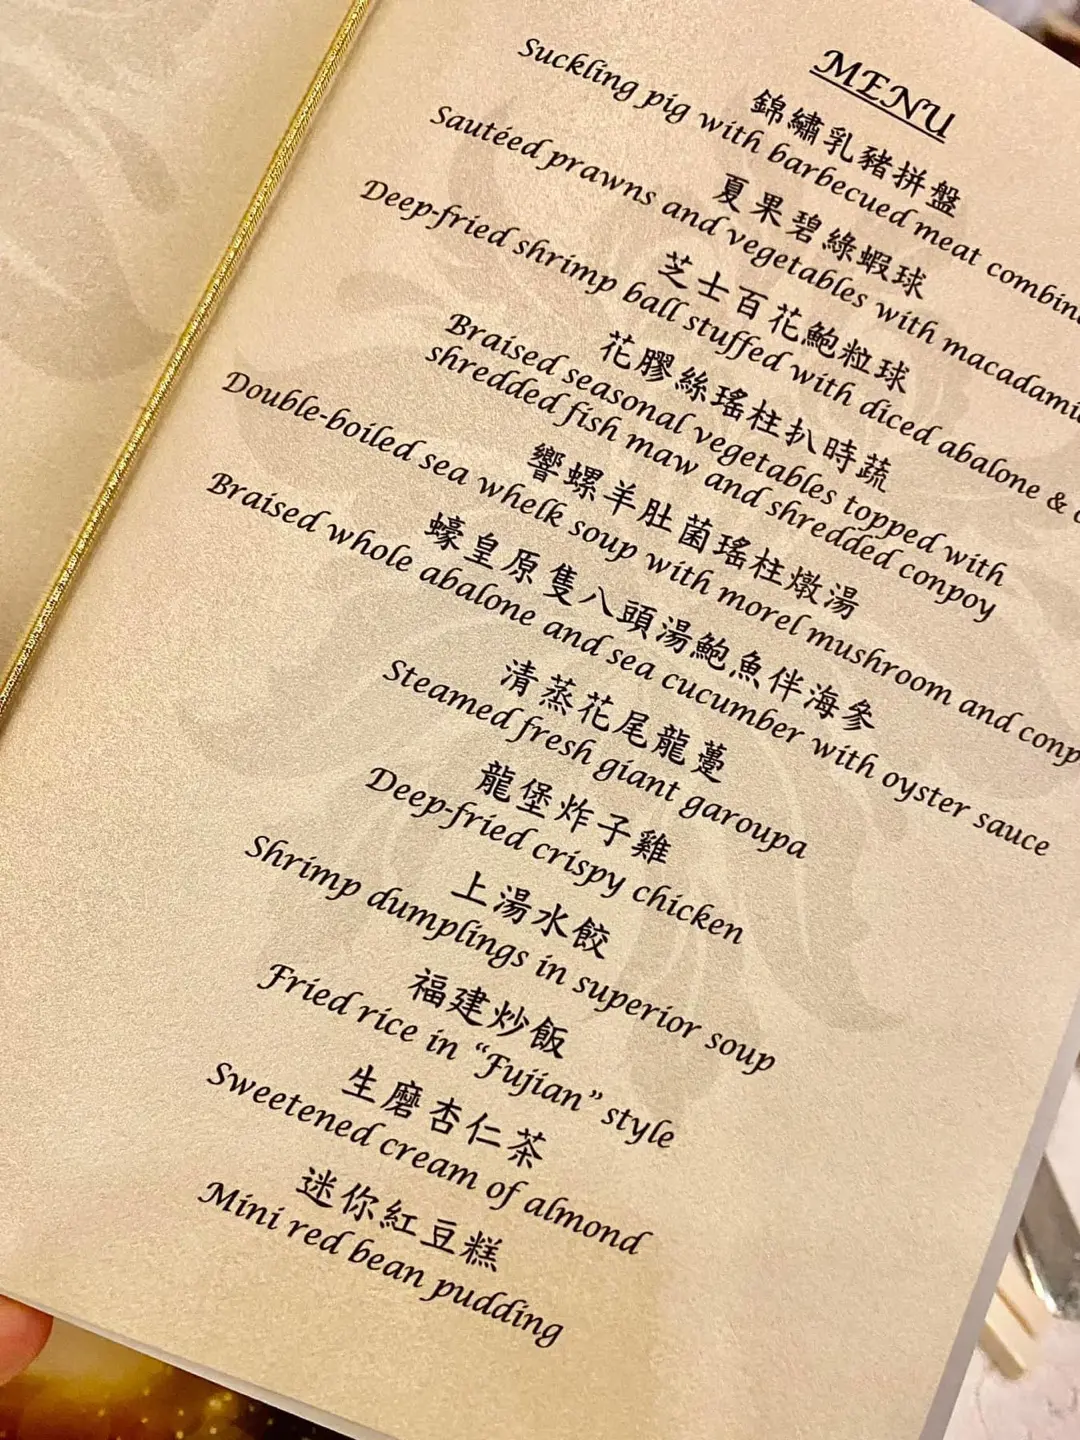 MENU
錦繡乳豬拼盤
Suckling pig with barbecued meat
夏果碧綠蝦球
Sautéed prawns and vegetables with
芝士百花鮑粒球
Deep-fried shrimp ball stuffed with diced abalone &
花膠絲瑤柱扒時蔬
Braised seasonal vegetables topped with
shredded fish maw and shredded conpoy
響螺羊肚菌瑤柱燉湯
Double-boiled sea whelk soup with morel mushroom and
蠔皇原隻八頭湯鮑魚伴海參
Braised whole abalone and sea cucumber with oyster sauce
清蒸花尾龍躉
Steamed fresh giant garoupa
龍堡炸子雞
Deep-fried crispy chicken
上湯水餃
Shrimp dumplings in superior soup
福建炒飯
Fried rice in “Fujian” style
生磨杏仁茶
Sweetened cream of almond
迷你紅豆糕
Mini red bean pudding